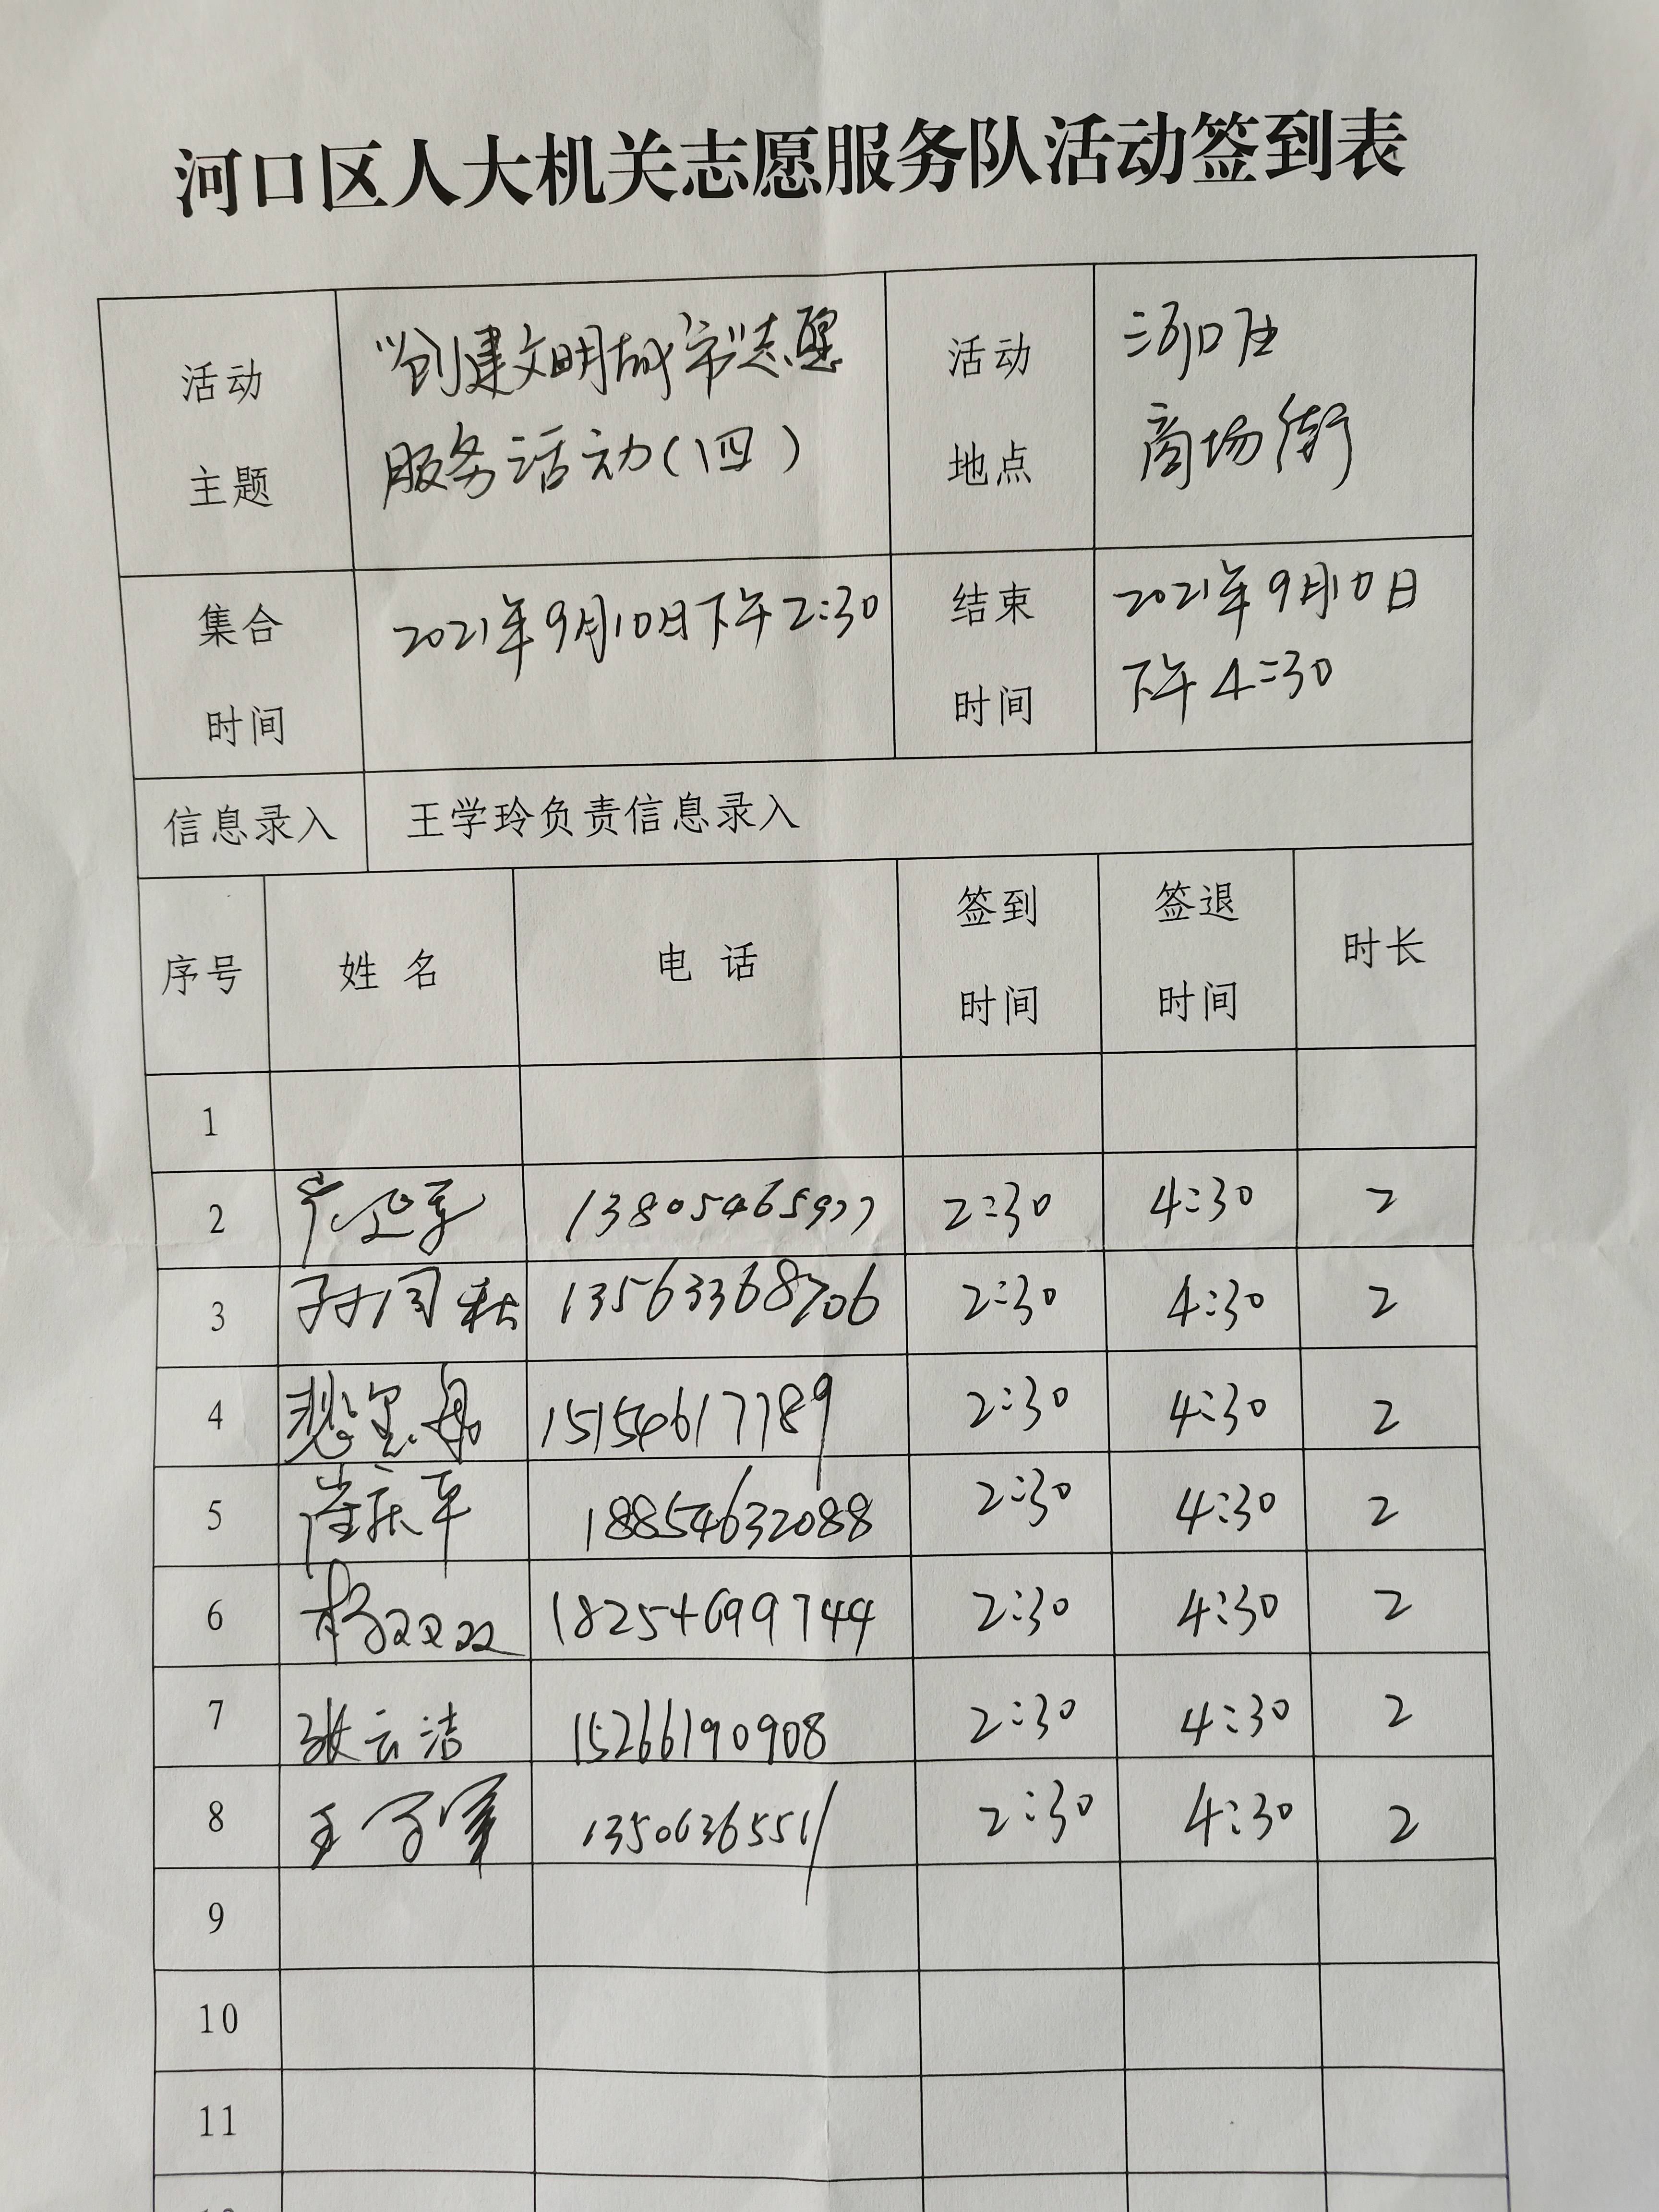 河口区人大机关志愿服务队活动签到表
活动主题 "创建文明城市"志愿服务活动(四) 活动地点 河口区商场街
集合时间 2021年9月10日下午2:30 结束时间 2021年9月10日下午4:30
信息录入 王学玲负责信息录入
序号 姓名 电话 签到时间 签退时间 时长
1
2 13805465977 2:30 4:30 2
3 13563368706 2:30 4:30 2
4 15154617789 2:30 4:30 2
5 崔庆平 18854632088 2:30 4:30 2
6 杨双双 18254699744 2:30 4:30 2
7 张云洁 15266190908 2:30 4:30 2
8 王 13506365511 2:30 4:30 2
9
10
11